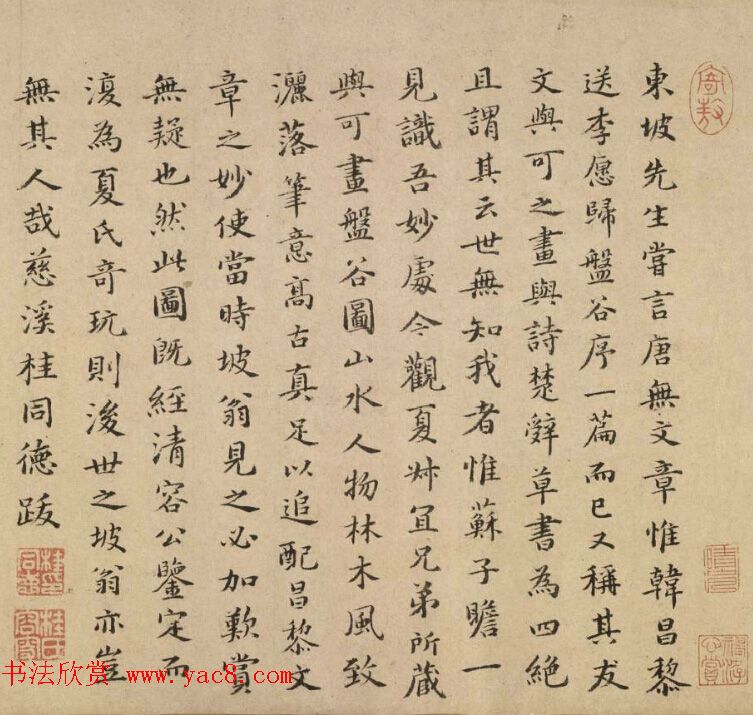 東坡先生嘗言唐無文章惟韓昌黎
送李愿歸盤谷序一篇而已又稱其友
文與可之畫與詩楚辭草書為四絶
且謂其云世無知我者惟蘇子瞻一
見識吾妙處今觀夏叔宜兄弟所藏
與可畫盤谷圖山水人物林木風致
灑落筆意髙古真足以追配昌黎文
章之妙使當時坡翁見之必加歎賞
無疑也然此圖既經清容公鑒定而
復為夏氏奇玩則後世之坡翁亦豈
無其人哉慈溪桂同德跋
书法欣赏 www.yac8.com